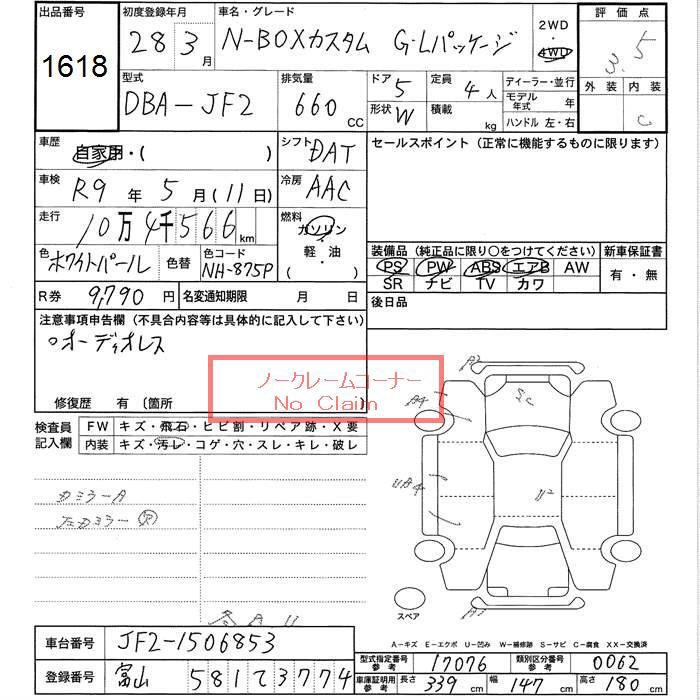 出品番号 初度登録年月 車名・グレード 2WD・4WD 評価点
1618 28 3月 N-BOXカスタム G・Lパッケージ 3.5
型式 排気量 ドア 5 定員 4人 ディーラー・並行 外装 内装
DBA-JF2 660 CC 形状 W 積載 kg モデル年式 年 C
ハンドル 左・右
車歴 自家用・( ) シフト DAT セールスポイント (正常に機能するものに限ります)
車検 R9年 5月(11日) 冷房 AAC
走行 10万4千566km 燃料 ガソリン・軽油・( )
色 ホワイトパール 色替 色コード NH-875P 装備品 (純正品に限り○をつけてください) 新車保証書
PS PW ABS エアB AW 有・無
SR ナビ TV カワ
R券 9,790円 名変通知期限 月 日 後日品
注意事項申告欄 (不具合内容等は具体的に記入して下さい)
○オーディオレス
ノークレームコーナー
No Claim
修復歴 有 〔箇所
検査員記入欄 FW キズ・飛石・ヒビ割・リペア跡・X要
内装 キズ・汚レ・コゲ・穴・スレ・キレ・破レ
カミラーA
左カミラー
A4
UA4
U2
スペア
A-キズ E-エクボ U-凹み W-補修跡 S-サビ C-腐食 XX-交換済
車台番号 JF2-1506853
型式指定番号 参考 17076 類別区分番号 参考 0062
登録番号 富山 581 て 3774
車庫証明用 参考 長さ 339cm 幅 147cm 高さ 180cm